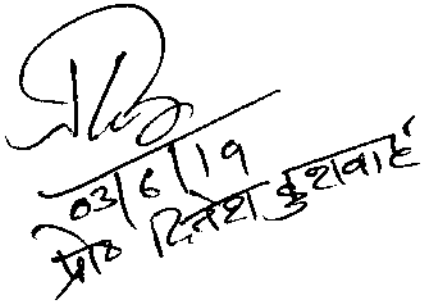 03/6/19
प्रो० दिनेश कुशवाह